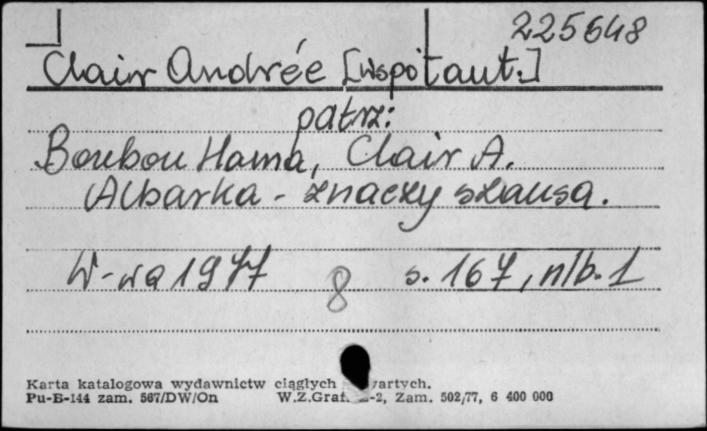 225648
Clair Andrée [współaut.]
patrz:
Boubou Hama, Clair A.
Albarka - znaczy szansa.
W-wa 1977 s. 167, nlb. 1
8
Karta katalogowa wydawnictw ciągłych
Pu-B-144 zam. 567/DW/On W.Z.Graf. -2, Zam. 502/77, 6 400 000